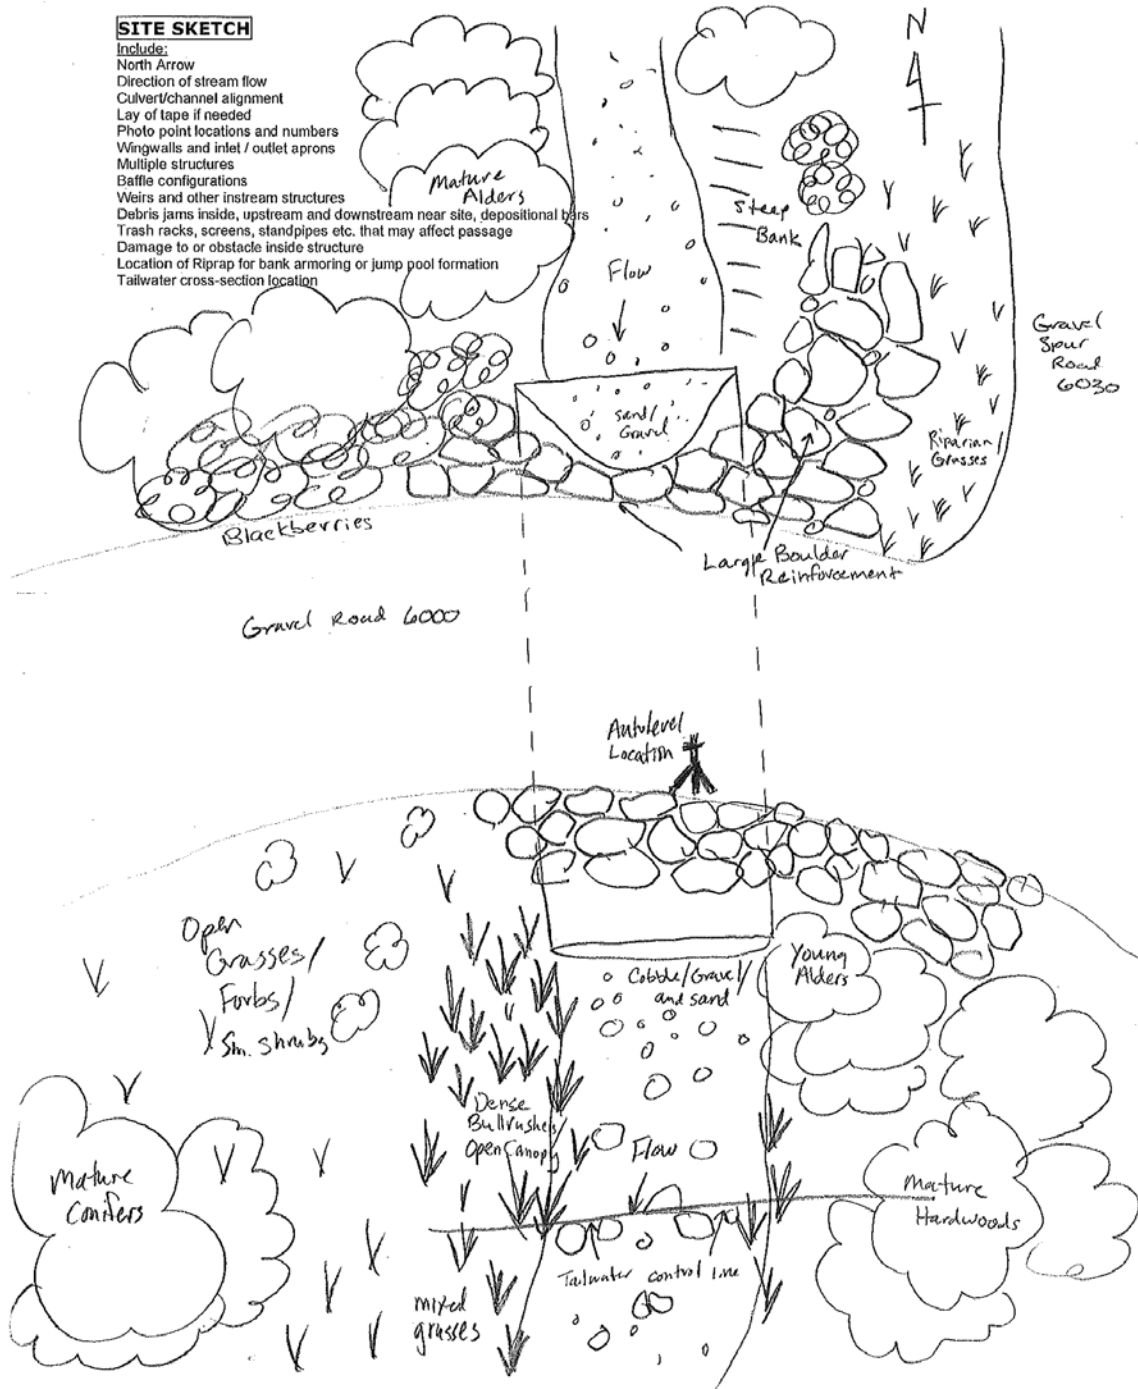 SITE SKETCH
Include:
North Arrow
Direction of stream flow
Culvert/channel alignment
Lay of tape if needed
Photo point locations and numbers
Wingwalls and inlet / outlet aprons
Multiple structures
Baffle configurations
Weirs and other instream structures
Debris jams inside, upstream and downstream near site, depositional bars
Trash racks, screens, standpipes etc. that may affect passage
Damage to or obstacle inside structure
Location of Riprap for bank armoring or jump pool formation
Tailwater cross-section location
N
Mature
Alders
Steep
Bank
Flow
Gravel
Spur
Road
6030
Sand/
Gravel
Riparian/
Grasses
Blackberries
Large Boulder
Reinforcement
Gravel Road 6000
Autolevel
Location
Open
Grasses/
Forbs/
Sm. Shrubs
Cobble/Gravel/
and sand
Young
Alders
Dense
Bullrushes/
Open Canopy
Flow
Mature
Conifers
Mature
Hardwoods
Tailwater control line
mixed
grasses